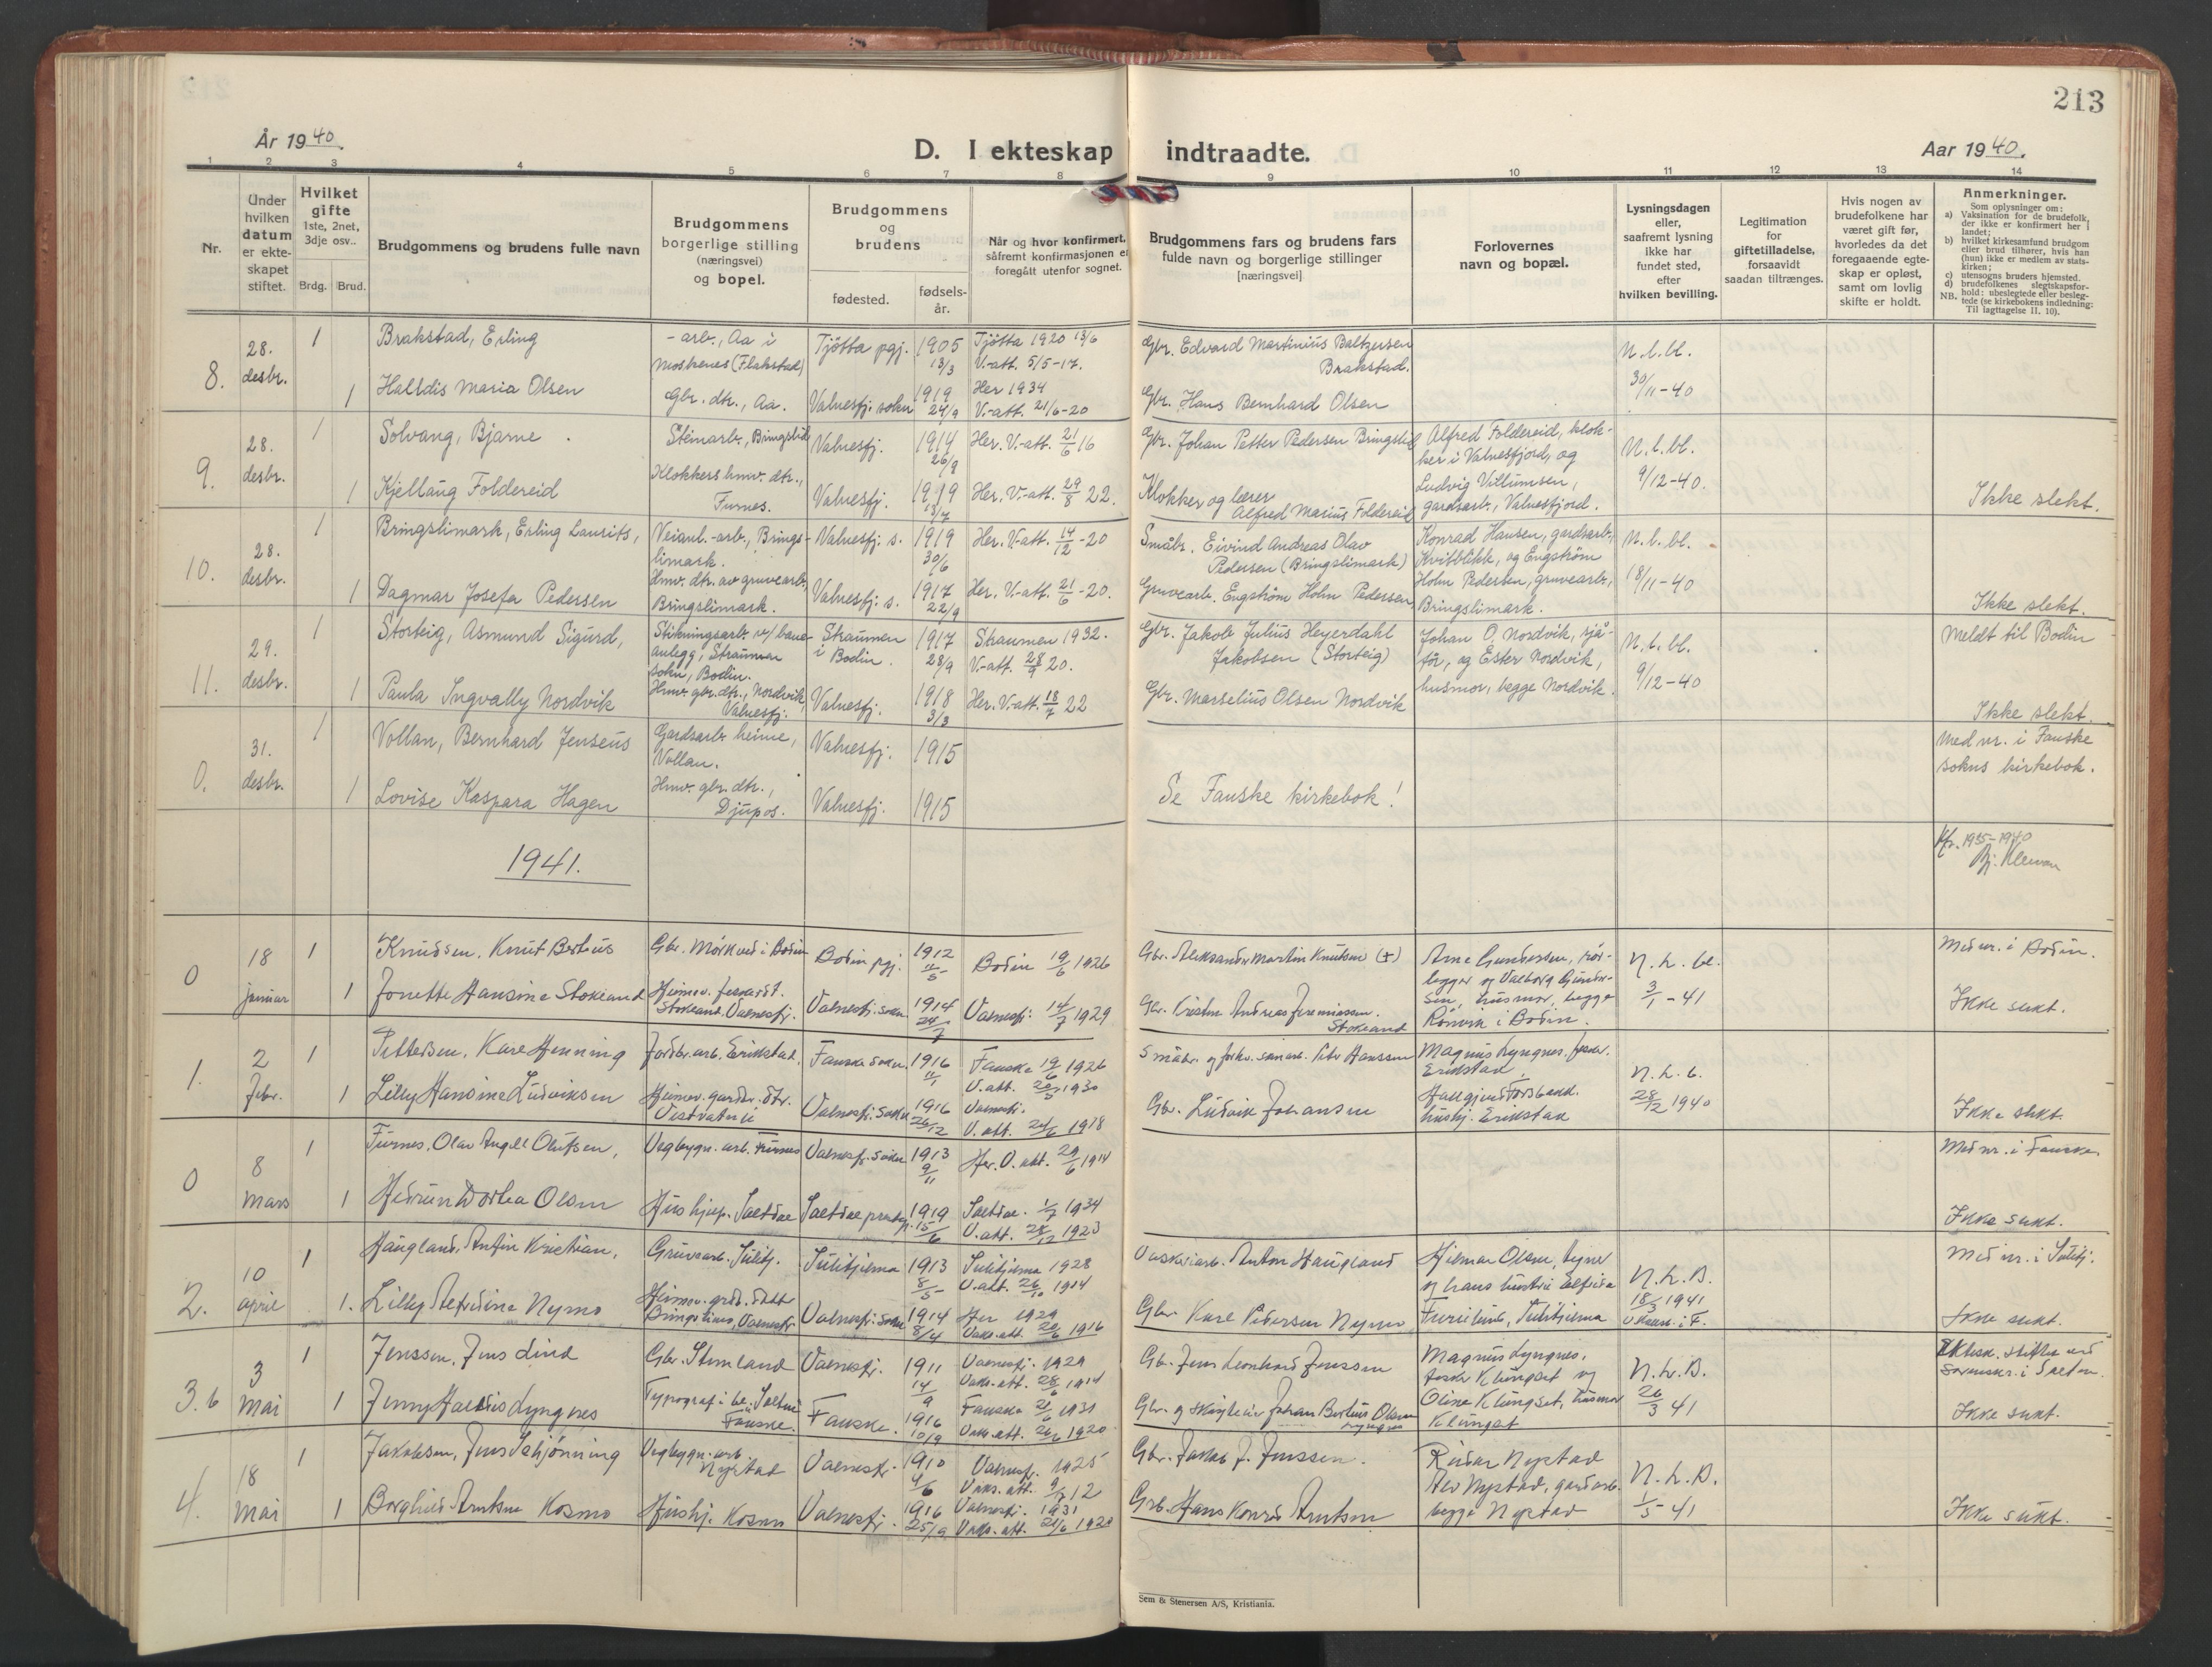 213
År 1940.
D. I ekteskap indtraadte.
Aar 1940.
1 2 3 4 5 6 7 8 9 10 11 12 13 14
Nr.
Under hvilken datum er ekteskapet stiftet.
Hvilket gifte 1ste, 2net, 3dje osv..
Brdg. Brud.
Brudgommens og brudens fulle navn
Brudgommens borgerlige stilling (næringsvei) og bopel.
Brudgommens og brudens
fødested.
fødsels-år.
Når og hvor konfirmert, såfremt konfirmasjonen er foregått utenfor sognet.
Brudgommens fars og brudens fars fulde navn og borgerlige stillinger [næringsvei]
Forlovernes navn og bopæl.
Lysningsdagen eller, saafremt lysning ikke har fundet sted, efter hvilken bevilling.
Legitimation for giftetilladelse, forsaavidt saadan tiltrænges.
Hvis nogen av brudefolkene har været gift før, hvorledes da det foregaaende egteskap er opløst, samt om lovlig skifte er holdt.
Anmerkninger.
Som oplysninger om:
a) Vaksination for de brudefolk, der ikke er konfirmert her i landet;
b) hvilket kirkesamfund brudgom eller brud tilhører, hvis han (hun) ikke er medlem av statskirken;
c) utensogns bruders hjemsted.
d) brudefolkenes slegtskapsforhold: ubeslegtede eller beslegtede (se kirkebokens indledning:
NB. Til Iagttagelse II. 10).
8. 28. desbr. 1 Brakstad, Erling - arb., Aa i Moskenes (Flakstad) Tjøtta pgj. 1905 13/3 Tjøtta 1920 13/6 V.-att. 5/5-17. Gbr. Edvard Martinius Baltzersen Brakstad. N.l.bl. 30/11-40
1 Halldis Maria Olsen Gbr. dtr., Aa. Valnesfj. sokn 1919 24/9 Her 1934 V.-att. 21/6-20 Gbr. Hans Bernhard Olsen
9. 28. desbr. 1 Solvang, Bjarne. Steinarb., Bringslid Valnesfj. 1914 26/9 Her. V.-att. 21/6 16 Gbr. Johan Petter Pedersen Bringslid Alfred Foldereid, klokker i Valnesfjord, og Ludvig Villumsen, gardsarb., Valnesfjord. N.l.bl. 9/12-40.
1 Kjellaug Foldereid Klokkers hmv. dtr., Furnes. Valnesfj. 1919 13/7 Her. V.-att. 29/8 22. Klokker og lærer Alfred Marius Foldereid Ikke slekt.
10. 28. desbr. 1 Bringslimark, Erling Laurits, Veianl.-arb., Bringslimark. Valnesfj. s. 1919 30/6 Her. V.-att. 14/12-20 Småbr. Eivind Andreas Olav Pedersen (Bringslimark) Konrad Hansen, gardsarb., Kvitblikk, og Engstrøm Holm Pedersen, gruvearb., Bringslimark. N.l.bl. 18/11-40
1 Dagmar Josefa Pedersen Hmv. dtr. av gruvearb., Bringslimark. Valnesfj. s. 1917 22/9 Her. V.-att. 21/6-20. Gruvearb. Engstrøm Holm Pedersen Ikke slekt.
11. 29. desbr. 1 Storteig, Asmund Sigurd, Stikningsarb. v/ baneanlegg, Straumen sokn, Bodin. Straumen i Bodin. 1917 28/9 Straumen 1932. V.-att. 28/9 20. Gbr. Jakob Julius Heyerdahl Jakobsen (Storteig) Johan O. Nordvik, sjåfør, og Ester Nordvik, husmor, begge Nordvik. N.l.bl. 9/12-40 Meldt til Bodin
1 Paula Ingvally Nordvik Hmv. gbr. dtr., Nordvik, Valnesfj. Valnesfj. 1918 3/3 Her. V.-att. 18/7 22 Gbr. Marselius Olsen Nordvik Ikke slekt.
0. 31. desbr. 1 Vollan, Bernhard Jenseus Gardsarb. heime, Vollan. Valnesfj. 1915 Med nr. i Fauske sokns kirkebok.
1 Lovise Kaspara Hagen Hmv. gbr. dtr., Djupos. Valnesfj. 1915 Se Fauske kirkebok!
Kfr. 1935-1940
1941.
0 18 januar 1 Knudsen, Knut Berteus Gbr. Mørkved i Bodin Bodin pgj. 1912 11/5 Bodin 19/6 1926 Gbr. Aleksander Martin Knutsen (+) Arne Gundersen, rørlegger og Valborg Gundersen, husmor, begge Rønvik i Bodin. N.L.bl. 3/1-41 Med nr. i Bodin.
1 Jonette Hansine Stokland Heimev. Stokland, Valnesfj. Valnesfj. sokn 1914 24/7 Valnesfj. 14/7 1929 Gbr. Kristen Andreas Jeremiassen Stokland Ikke slekt.
1. 2 Febr. 1 Pettersen, Kåre Henning Jordbr. arb. Erikstad. Fauske sokn. 1916 11/1 Fauske 19/6 1926 V.att. 20/5 1930 Småbr. og Petter Hanssen Magnus Lyngnes, fisker, Erikstad N.L.b. 28/12 1940
1 Lilly Hansine Ludviksen Heimev. gardbr. dtr. Vestvatnli Valnesfj. sokn 1916 26/12 Valnesfj. V.att. 24/6 1918 Gbr. Ludvik Johansen Hallgjerd Forsbakk hushj. Erikstad Ikke slekt.
0 8 Mars 1 Furnes, Olav Angell Olufsen, Vegbygn. arb. Furnes Valnesfj. sokn 1913 9/11 Her. V.att. 29/6 1914 Med nr. i Fauske.
1 Hedrun Dorthea Olsen Hushjelp. Saltdal Saltdal prestegj. 1919 15/6 Saltdal. 1/7 1934 V.att. 28/12 1923 Ikke slekt.
2. 10 april 1 Haugland, Anfin Kristian, Gruvearb. Sulitj. Sulitjelma 1913 8/5 Sulitjelma 1928 V.att. 26/10 1914 Vaskeriarb. Anton Haugland Hilmar Olsen og hans hustru Elfrida Furulund, Sulitjelma N.L.B. 18/3 1941 Med nr. i Sulitj.
1. Lilly Alfridine Nymo Heimev. grdb. datter Bringslimo, Valnesfj. Valnesfj. sokn 1914 8/4 Her 1929 Vaks.att. 20/6 1916 Gbr Karl Pedersen Nymo Ikke slekt.
3.b 3 Mai 1 Jenssen, Jens Lind Gbr. Stemland Valnesfj. 1911 14/9 Valnesfj. 1929 Vaks.-att. 28/6 1914 Gbr. Jens Leonhard Jenssen Magnus Lyngnes, fisker Klungset og Oline Klungset, husmor Klungset N.L.B. 26/3 41 Ektesk. stiftet ved sorenskr. i Salten.
1 Jenny Halldis Lyngnes Typograf i Fauske. Fauske. 1916 10/9 Fauske 21/6 1931 Vaks.att. 1920 Gbr. og Johan Berteus Olsen Lyngnes Ikke slekt.
4. 18 Mai 1 Jakobsen, Jens Schjønning Vegbygn. arb. Nystad Valnesfj. 1910 4/6 Valnesfj. 1925 Vaks. att. 9/7 12 Gbr. Jakob J. Jenssen. Reidar Nystad Alv Nystad, gardarb. begge Nystad N.L.B. 1/5-41
1 Borghild Arntsen Kosmo Hushj. Kosmo Valnesfj. 1916 25/9 Valnesfj. 1931 Vaks.-att. 21/6 1920 Grb. Hans Konrad Arntsen Ikke slekt.
Sem & Stenersen A/S, Kristiania.